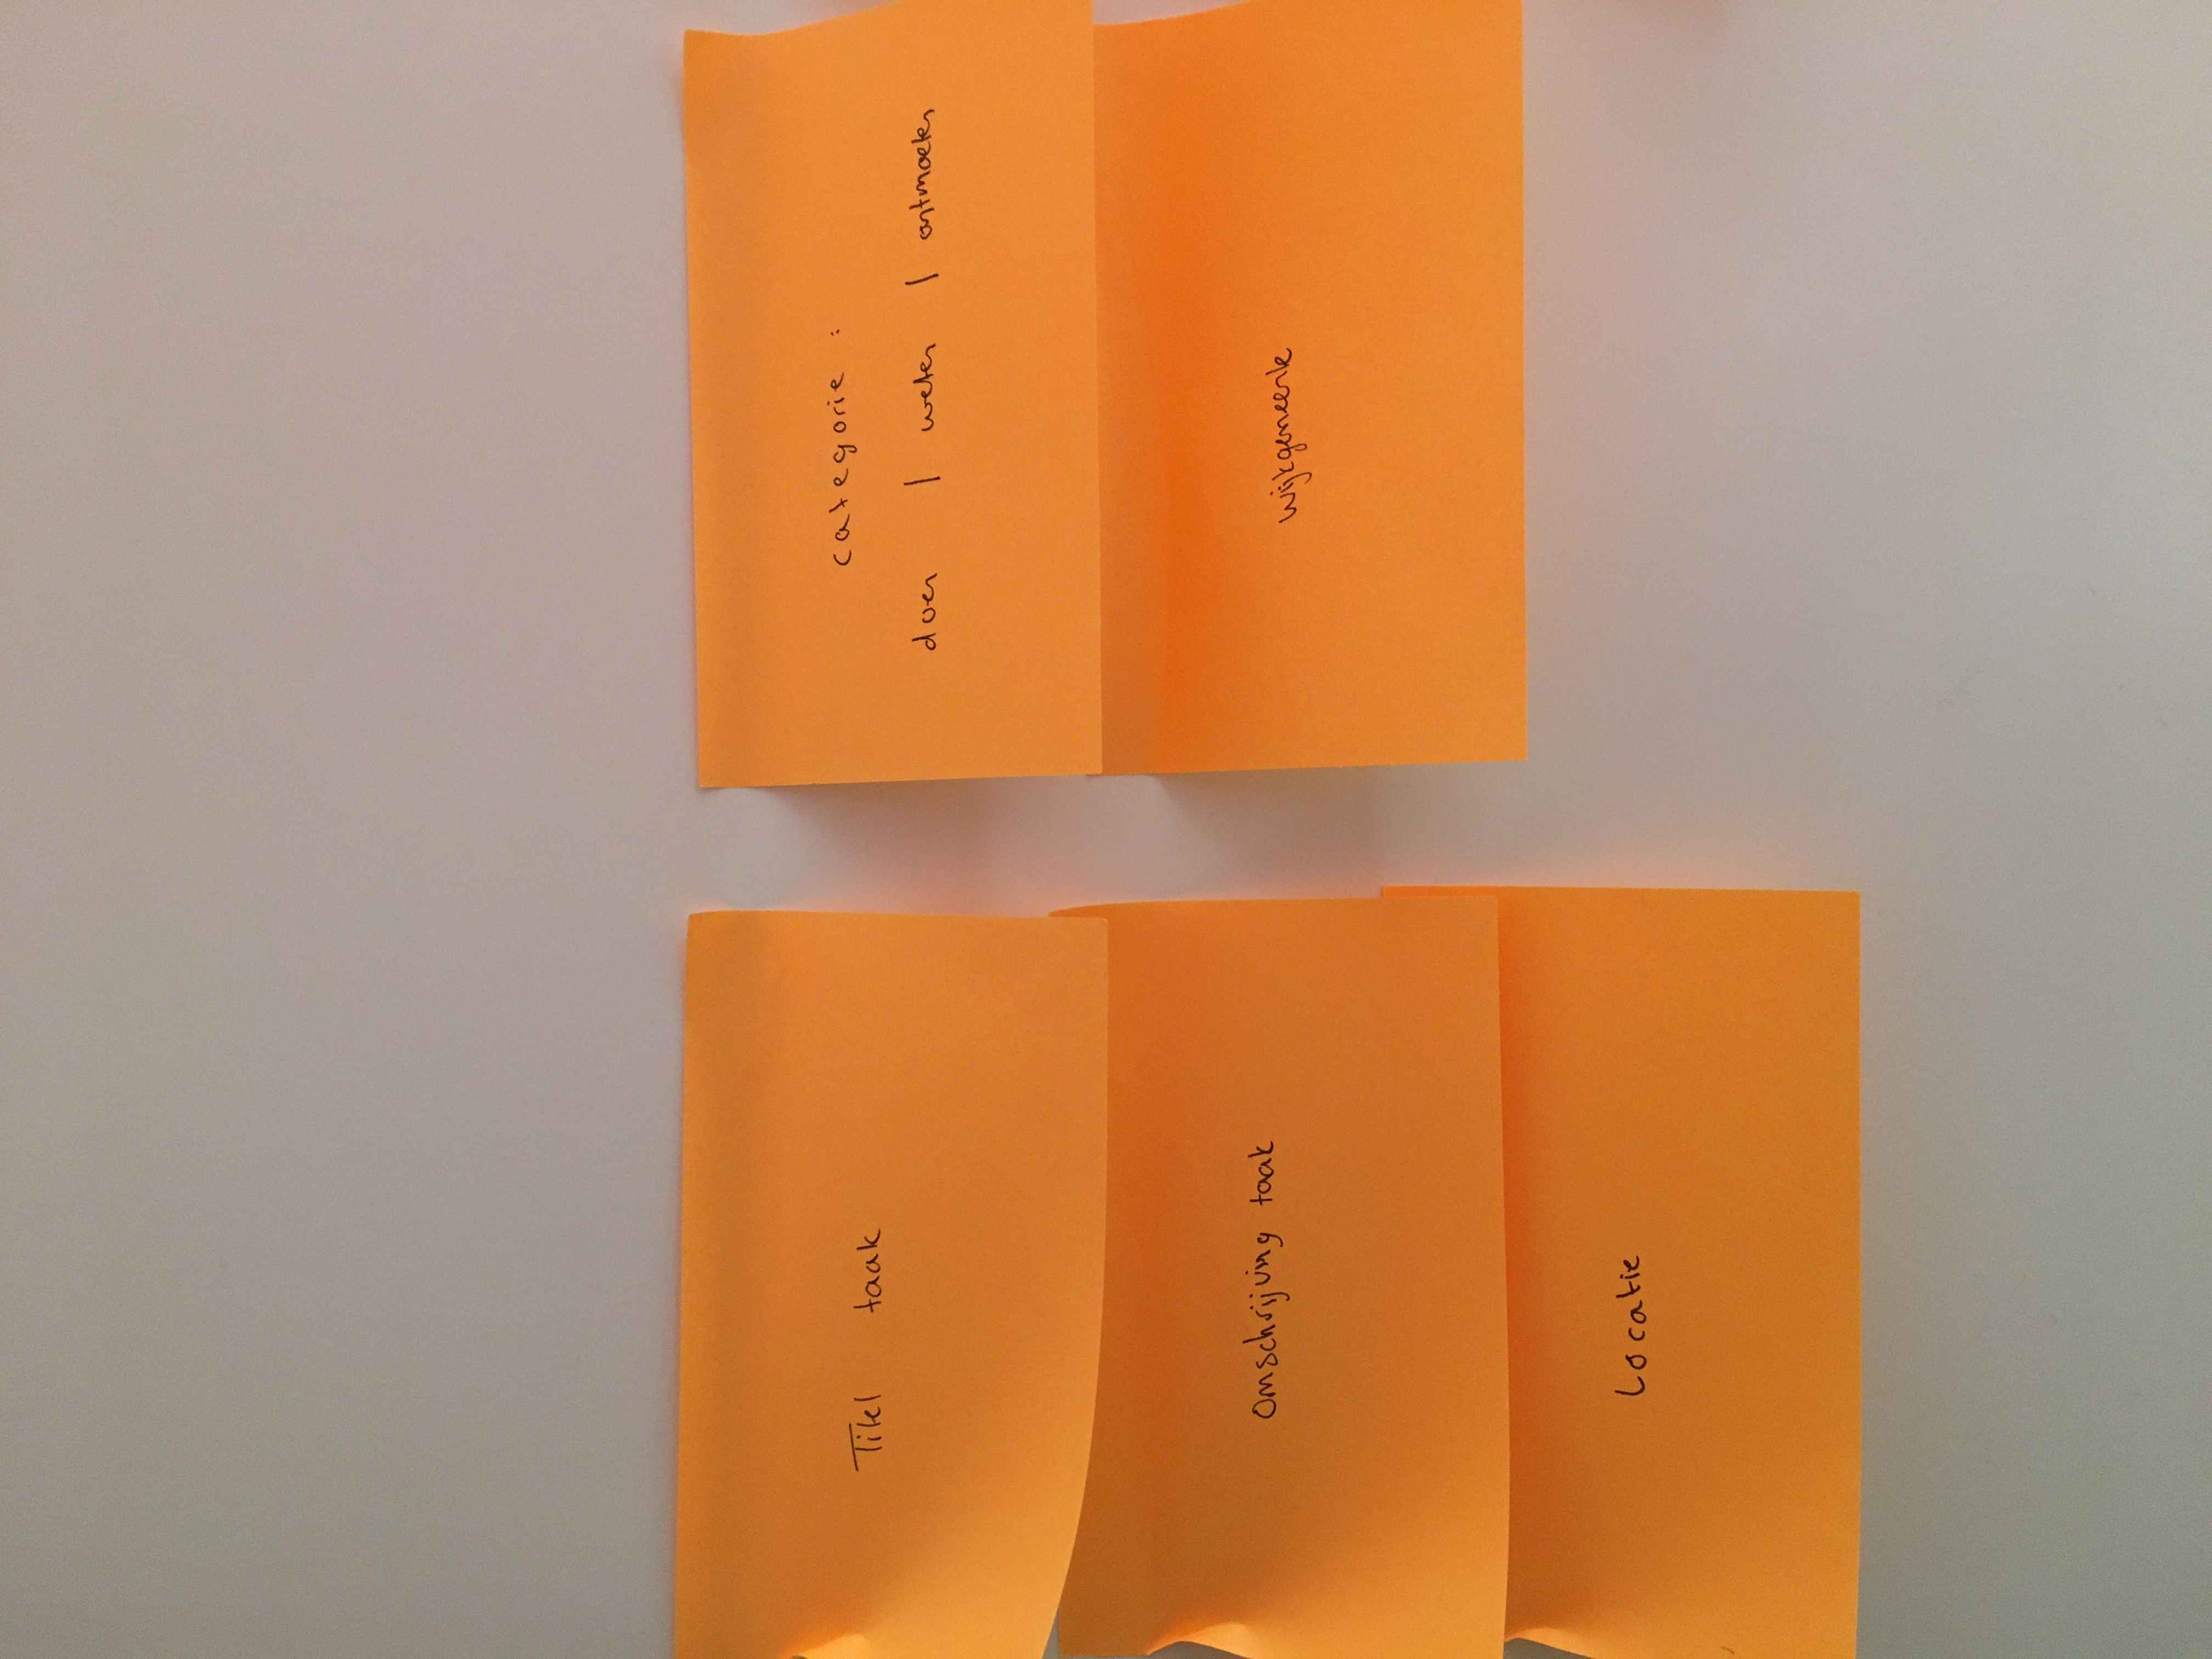 Titel taak
Omschrijving taak
Locatie
categorie :
doen | weten | ontmoeten
wijkgemeente